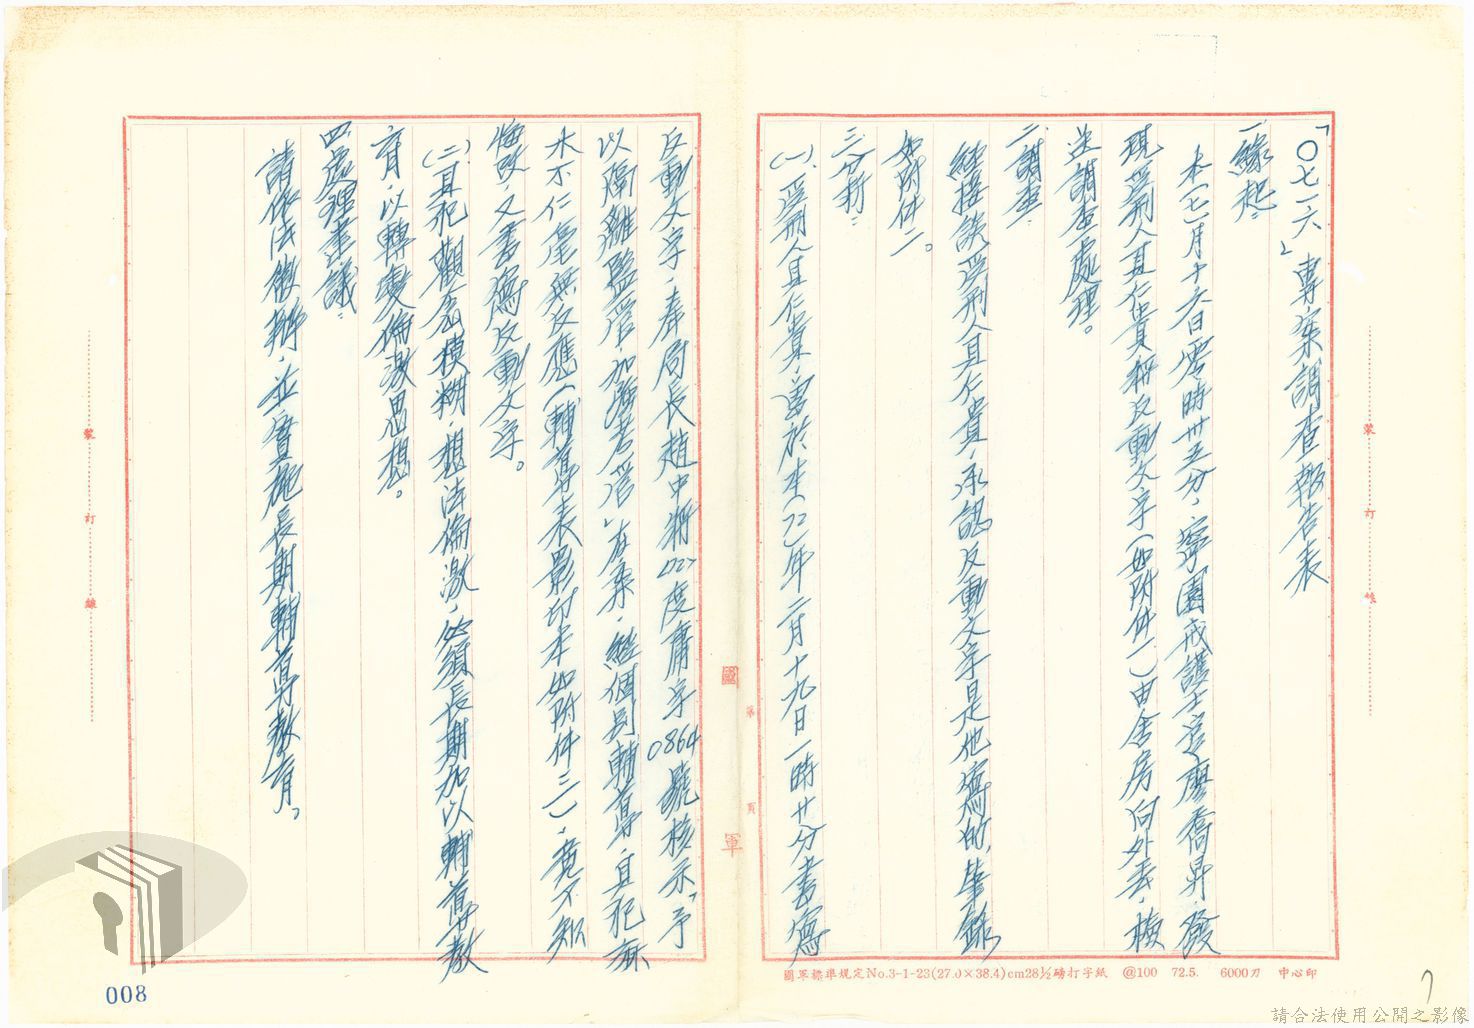 「〇七一六」專案調查報告表
一、緣起：
本(七)月十六日零時卅五分，寧園戒護士官廖喬昇，發
現受刑人直仁貴稱反動文字(如附件一)由舍房向外丟，檢
送調查處理。
二、調查：
經接談受刑人直仁貴，承認反動文字是他寫的，筆錄
如附件二。
三、分析：
(一)、受刑人直仁貴，曾於本(72)年二月十九日一時廿分書寫
反動文字，奉局長趙中將 度庸字0864號核示「予
以隔離監管，加強考管」在案，經個別輔導，直犯麻
木不仁毫無反應(輔導表影印本如附件三)，竟不知
悔改，又書寫反動文字。
(二)、直犯觀念模糊，想法偏激，必須長期加以輔導教
育，以轉變偏激思想。
四、處理建議：
請依法徵辦，並實施長期輔導教育。
國軍
第 頁
裝訂線
裝訂線
國軍標準規定No.3-1-23(27.0×38.4)cm28½磅打字紙 @100 72.5. 6000刀 中心印
008
7
請合法使用公開之影像